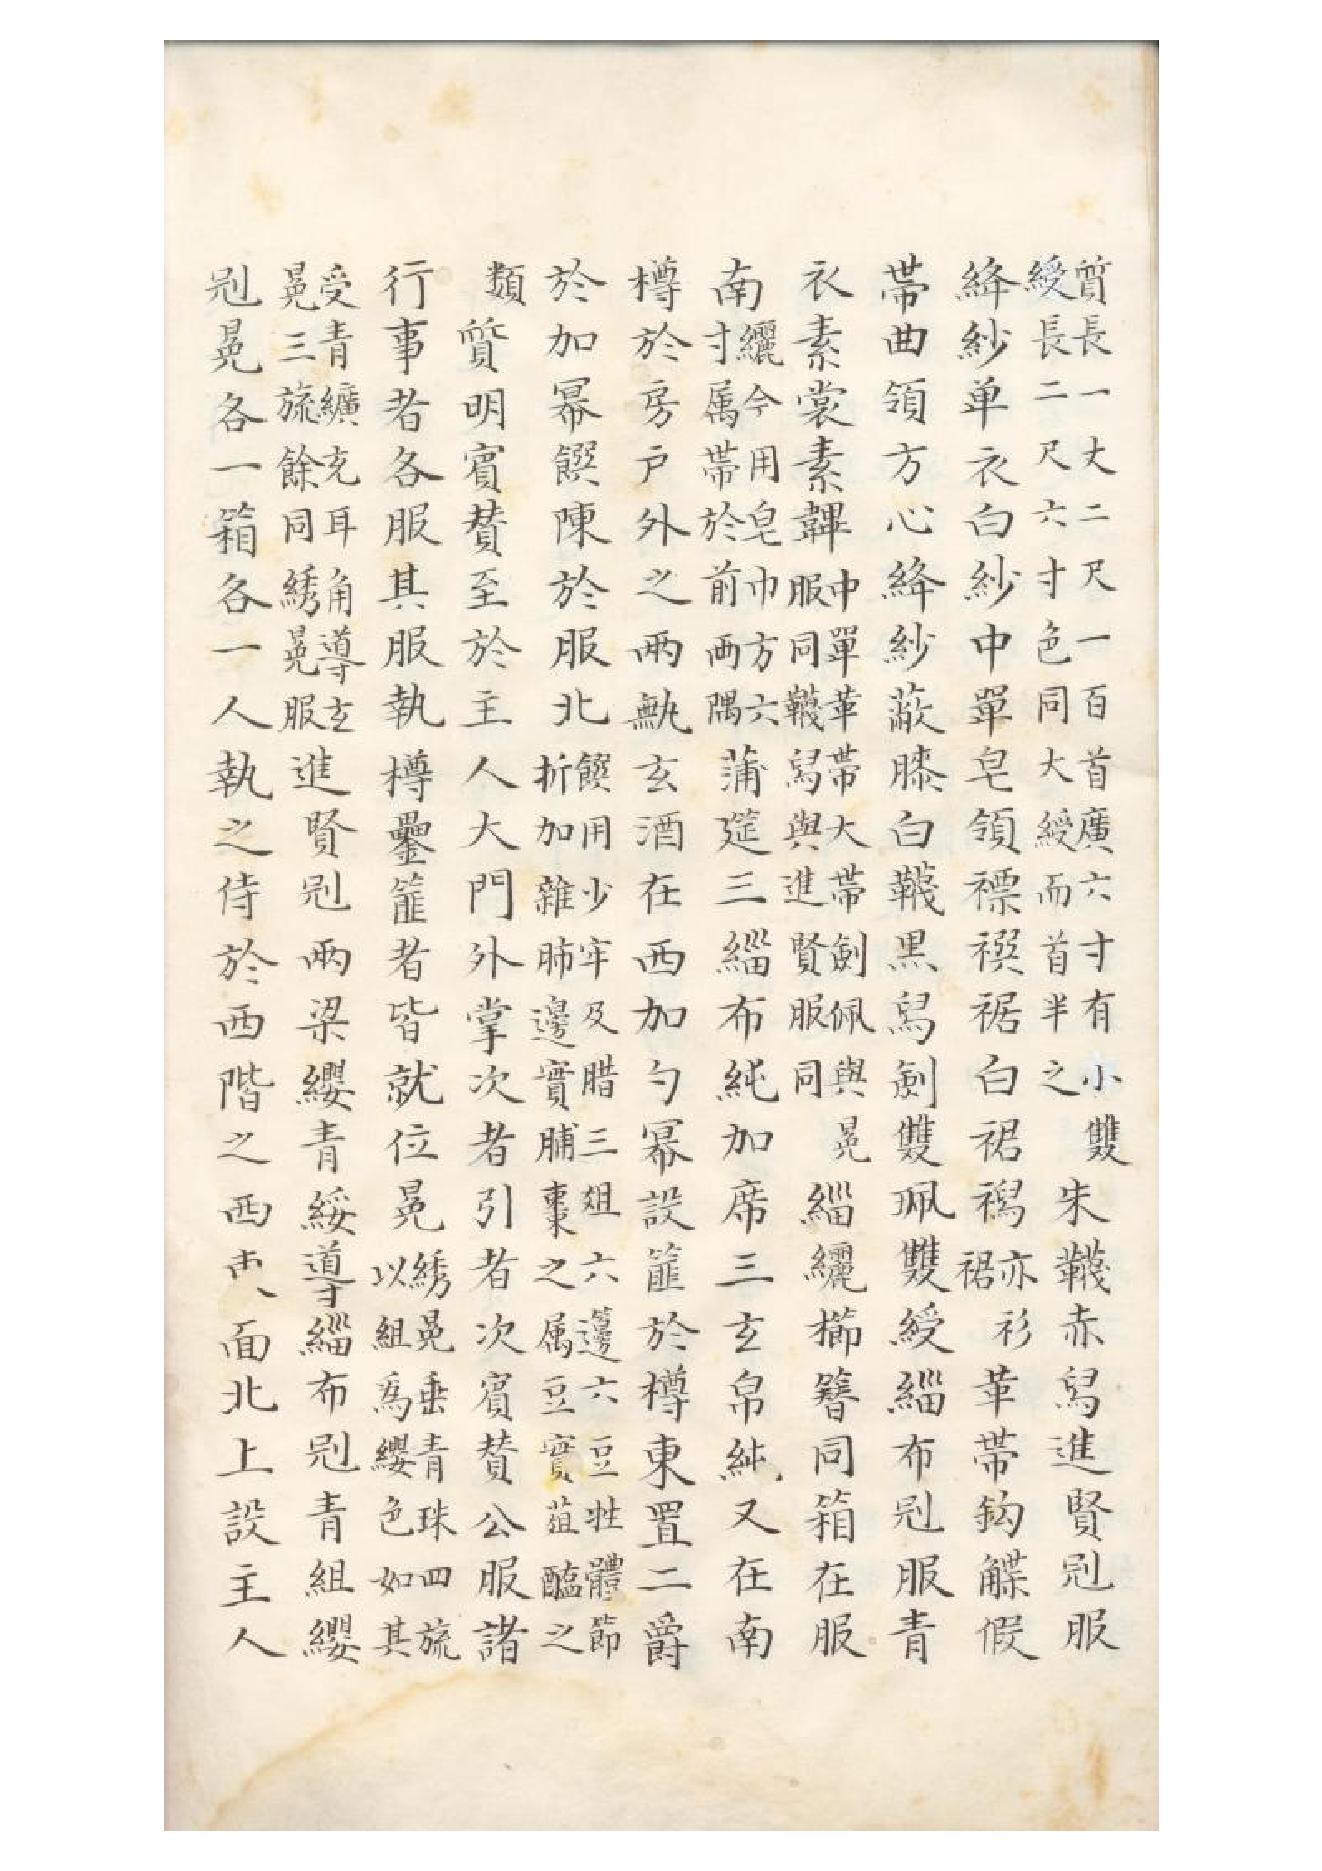 質長一丈二尺一百首廣六寸有小雙綬長二尺六寸色同大綬而首半之朱韈赤舄進賢冠服
絳紗单衣白紗中單皂領褾襈裾白裙襦亦裙衫革帶鈎䚢假
帶曲領方心絳紗蔽膝白韈黑舄劍雙珮雙綬緇布冠服青
衣素裳素韠中單革帶大帶劍佩與冕服同韈舄與進賢服同緇纚櫛簪同箱在服
南纚今用皂巾方六寸属帶於前兩隅蒲筵三緇布純加席三玄帛純又在南
樽於房戶外之兩甒玄酒在西加勺冪設篚於樽東置二爵
於加冪饌陳於服北饌用少牢及腊三俎六籩六豆牲體節折加雜肺籩實脯棗之属豆實菹醢之
類質明賓賛至於主人大門外掌次者引者次賓賛公服諸
行事者各服其服執樽罍篚者皆就位冕綉冕垂青珠四旒以組爲纓色如其
受青纊充耳角導玄冕三旒餘同綉冕服進賢冠兩梁纓青綏導緇布冠青組纓
冠冕各一箱各一人執之侍於西階之西面北上設主人